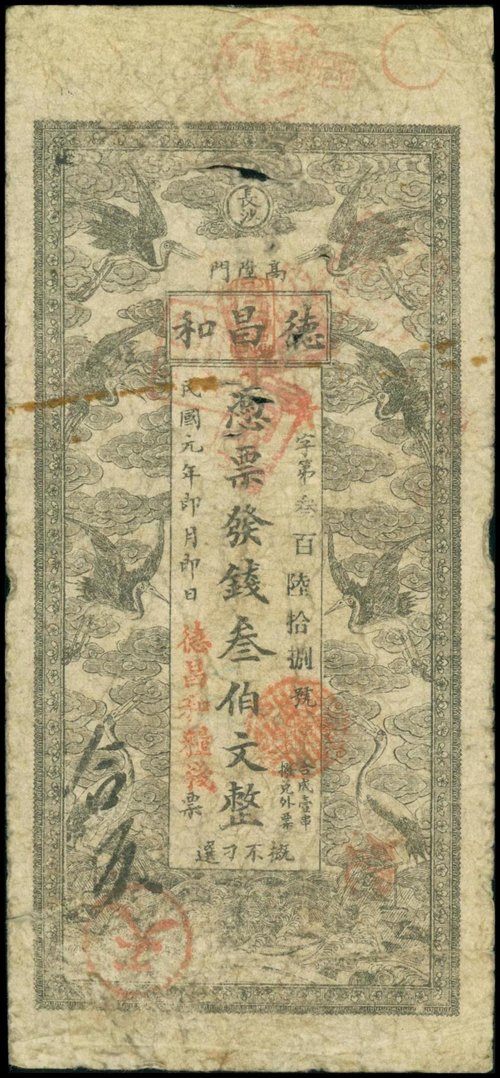 長沙
高陞門
德昌和
字第叁百陸拾捌號
憑票發錢叁伯文整
民國元年即月即日
德昌和雜後票
合成壹串
換兌外票
概不刁選